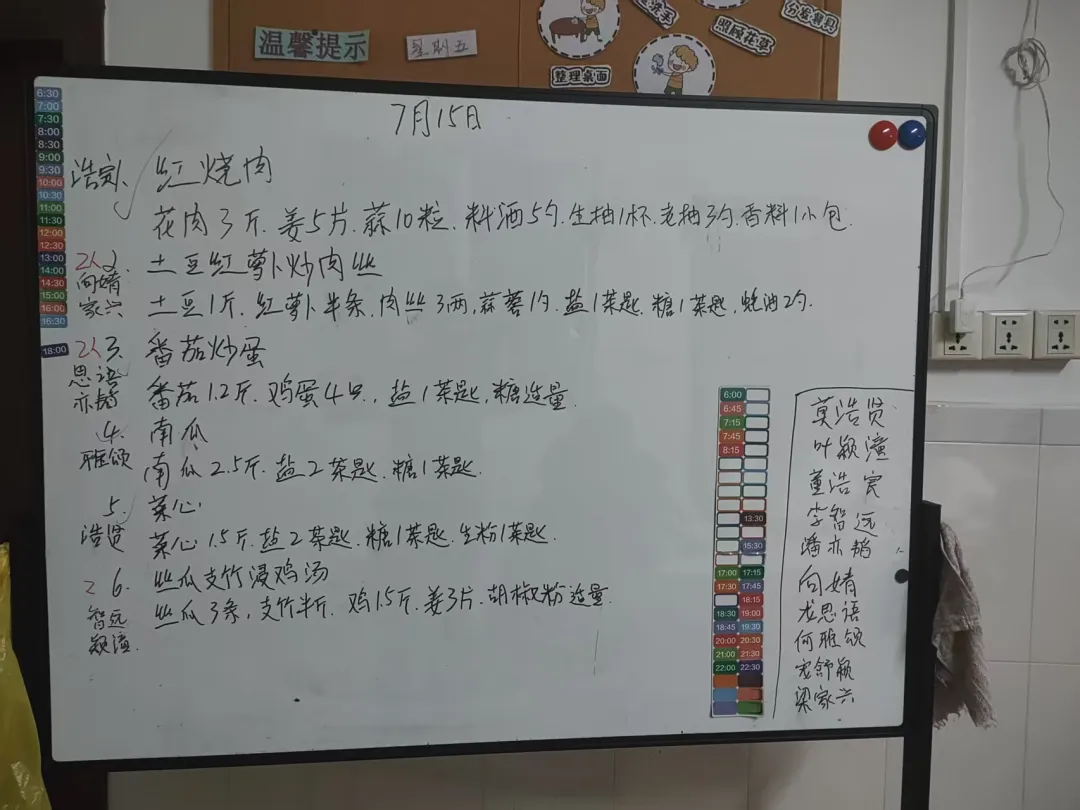 温馨提示
星期五
整理桌面
洗手
照顾花草
分发餐具
7月15日
6:30
7:00
7:30
8:00
8:30
9:00
9:30
10:00
10:30
11:00
11:30
12:00
12:30
13:00
14:00
14:30
15:00
16:00
16:30
18:00
浩宾、红烧肉
花肉3斤.姜5片.蒜10粒.料酒5勺.生抽1杯.老抽3勺.香料1小包.
2人2.土豆红萝卜炒肉丝
向婧
家六
土豆1斤.红萝卜半条.肉丝3两,蒜蓉1勺.盐1茶匙.糖1茶匙,蚝油2勺.
2人3.番茄炒蛋
思语
亦韬
番茄1.2斤.鸡蛋4只.,盐1茶匙,糖适量.
4.南瓜
雅颂
南瓜2.5斤.盐2茶匙.糖1茶匙.
5.菜心.
浩贤
菜心1.5斤.盐2茶匙.糖1茶匙.生粉1茶匙.
2 6.丝瓜支竹浸鸡汤
智远
颖潼.
丝瓜3条,支竹半斤.鸡1.5斤.姜3片.胡椒粉适量.
6:00
6:45
7:15
7:45
8:15
13:30
15:30
17:00 17:15
17:30 17:45
18:15
18:30 19:00
18:45 19:30
20:00 20:30
21:00 21:30
22:00 22:30
莫浩贤
叶颖潼
董浩宾
李智远
潘亦韬
向婧
龙思语
何雅颂
舒颖
梁家六